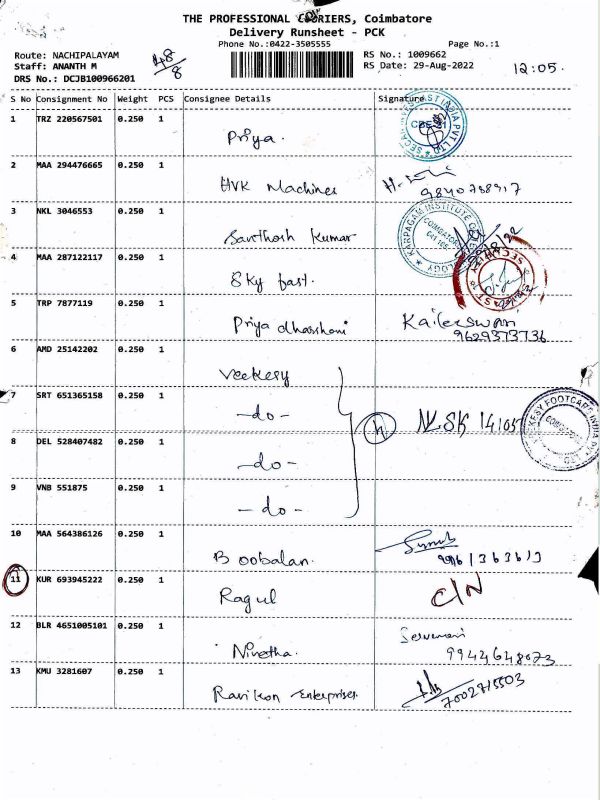 THE PROFESSIONAL COURIERS, Coimbatore
Delivery Runsheet - PCK
Phone No.:0422-3505555
Page No.:1
Route: NACHIPALAYAM
RS No.: 1009662
Staff: ANANTH M
48/8
RS Date: 29-Aug-2022
12:05.
DRS No.: DCJB100966201
S No Consignment No Weight PCS Consignee Details Signature
1 TRZ 220567501 0.250 1
Priya.
2 MAA 294476665 0.250 1
HVK Machines
9840788917
3 NKL 3046553 0.250 1
Santhosh Kumar
KARPAGAM INSTITUTE OF
COIMBATORE
4 MAA 287122117 0.250 1
Sky fast.
5 TRP 7877119 0.250 1
Priya dharshani
Kaileeswari
9629373736
6 AMD 25142202 0.250 1
Veekesy
7 SRT 651365158 0.250 1
-do-
NLSK 14105
VEEKESY FOOTCARE INDIA PVT LTD
8 DEL 528407482 0.250 1
-do-
9 VNB 551875 0.250 1
-do-
10 MAA 564386126 0.250 1
Boobalan.
11 KUR 693945222 0.250 1
Ragul
C/N
12 BLR 4651005101 0.250 1
Nivetha.
9944648073
13 KMU 3281607 0.250 1
Ravikon Enterprises
7002715503